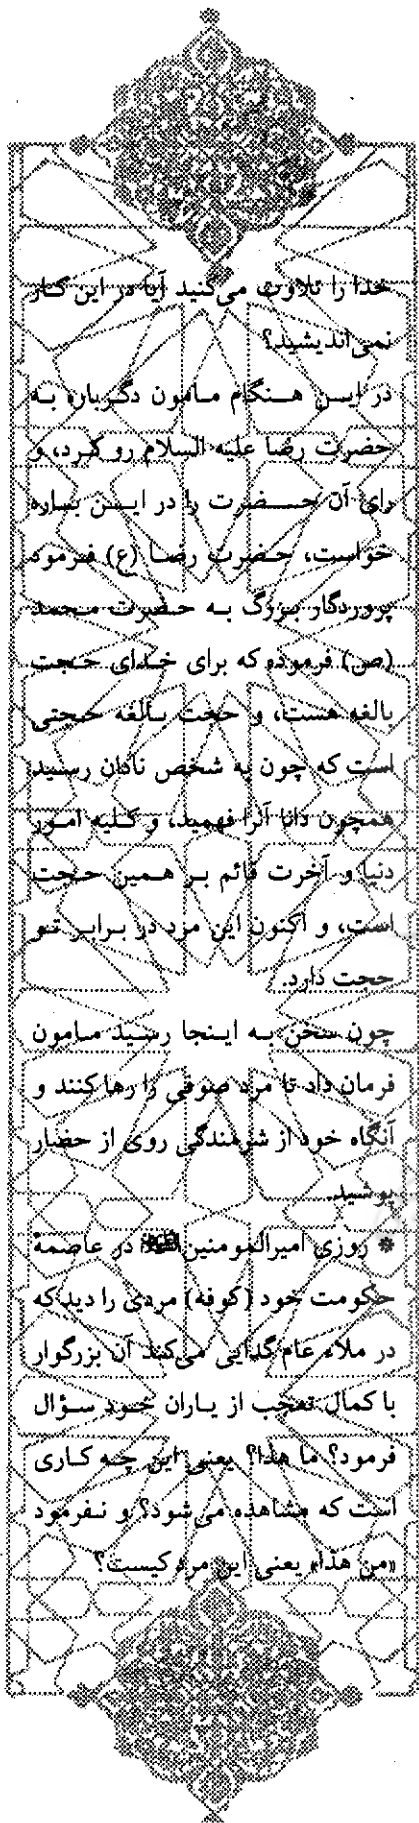 خدا را تلاوت می‌کنید آیا در این کار
نمی‌اندیشید؟
در ایـن هـنگام مـامون دگـرباره بـه
حضرت رضا علیه السلام رو کـرد، و
رای آن حـضرت را در ایـن بـاره
خواست، حـضرت رضـا (ع) فـرمود
پروردگار بـزرگ بـه حـضرت مـحمد
(ص) فرموده که برای خـدای حـجت
بالغه هست، و حجت بـالغه حـجتی
است که چون به شخص نادان رسـید
همچون دانا آنرا فهمید، و کـلیه امـور
دنیا و آخرت قائم بـر هـمین حـجت
است، و اکنون این مرد در بـرابـر تـو
حجت دارد.
چون سخن بـه ایـنجا رسـید مـامون
فرمان داد تا مرد صوفی را رها کنند و
آنگاه خود از شرمندگی روی از حضار
پوشید.
* روزی امیرالمومنین در عاصمهٔ
حکومت خود (کوفه) مردی را دید که
در ملاء عام گدایی می‌کند آن بزرگوار
با کمال تعجب از یـاران خـود سـؤال
فرمود؟ ما هذا؟ یعنی این چـه کـاری
است که مشاهده می‌شود؟ و نـفرمود
«من هذا» یعنی این مرد کیست؟